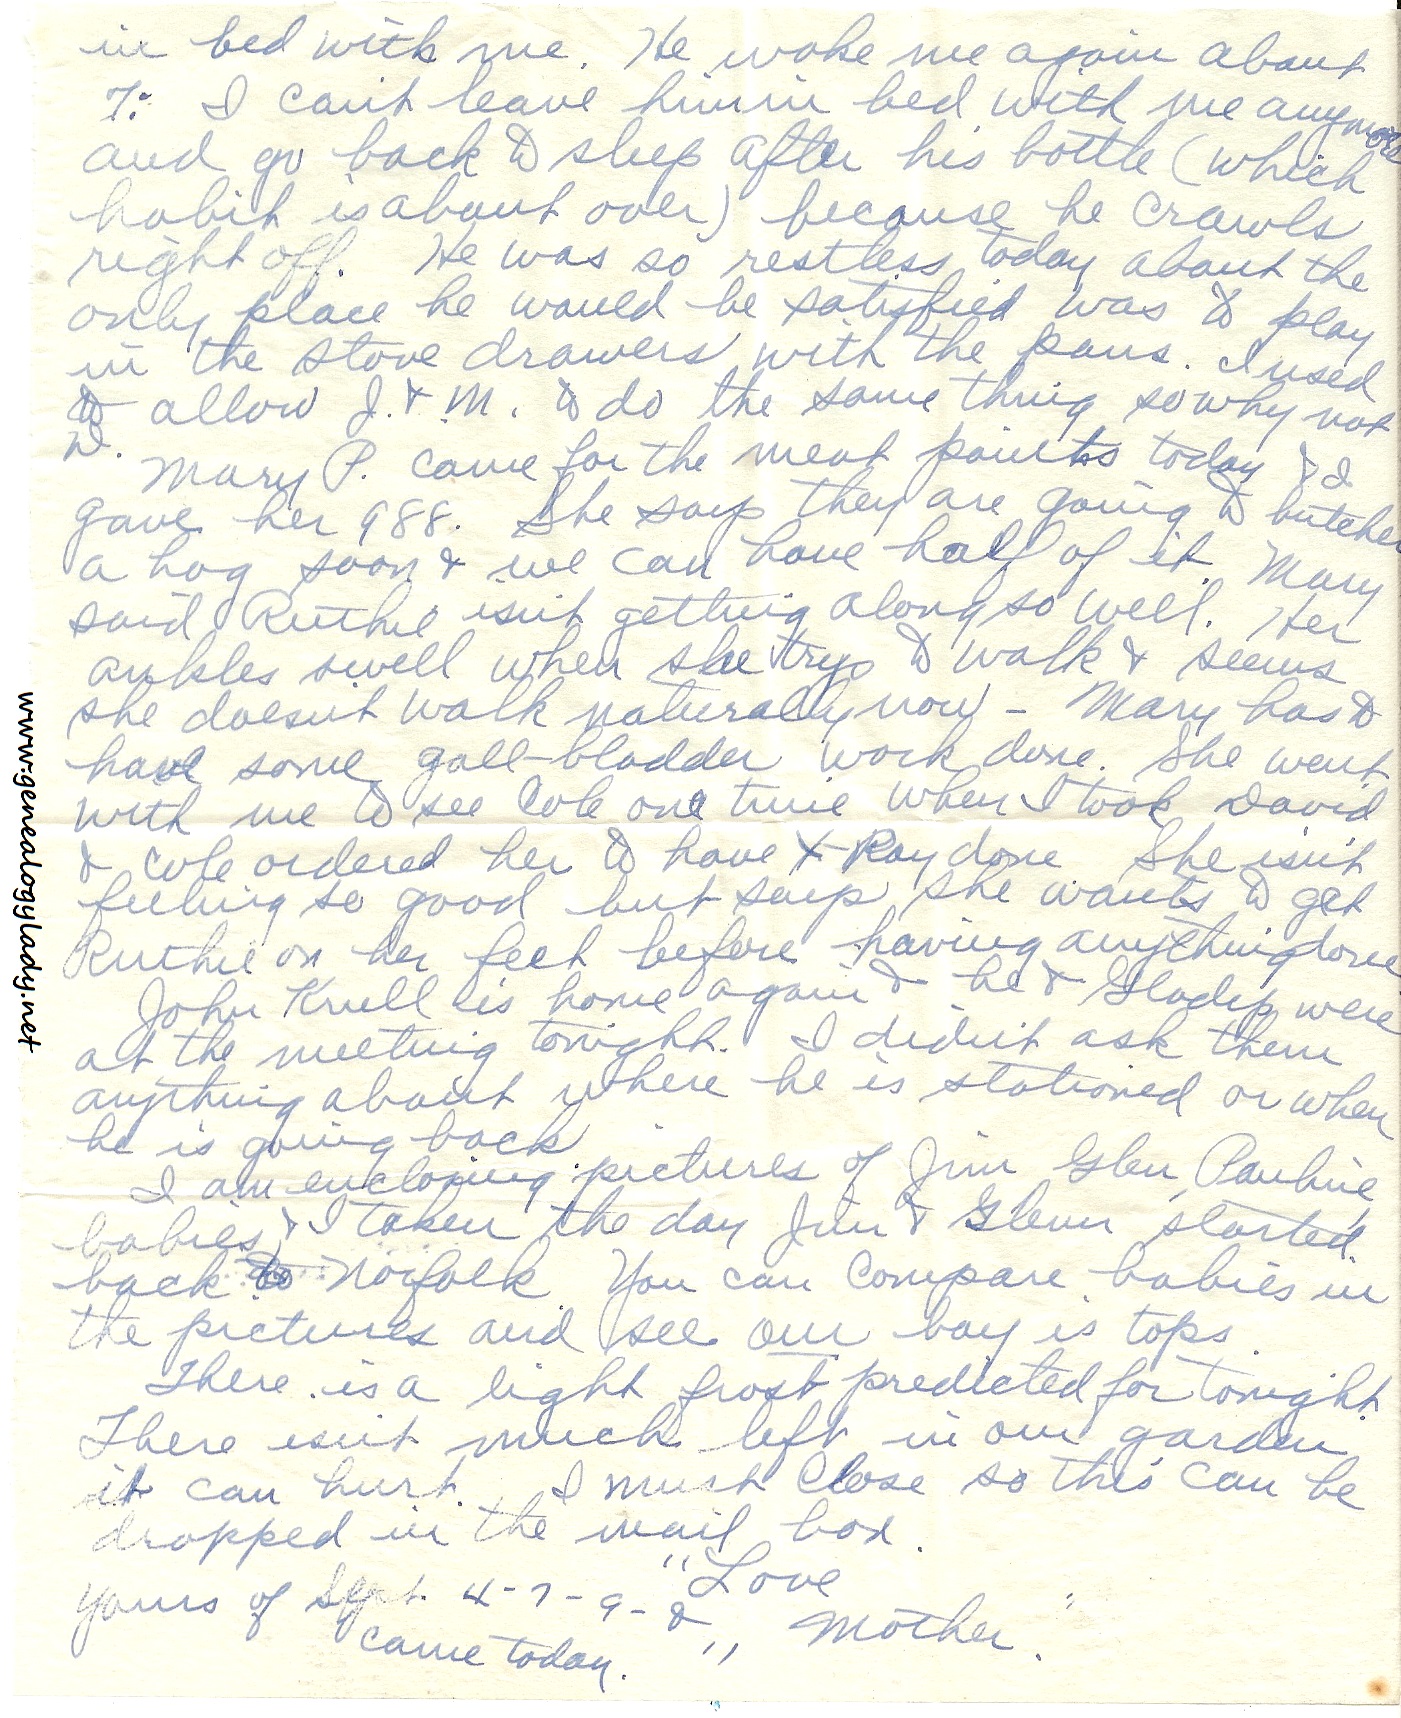 in bed with me. He woke me again about
7: I can't leave him in bed with me anymore
and go back to sleep after his bottle (which
habit is about over) because he crawls
right off. He was so restless today about the
only place he would be satisfied was to play
in the stove drawers with the pans. I used
to allow J. & M. to do the same thing so why not
D.
Mary P. came for the meat points today & I
gave her 988. She says they are going to butcher
a hog soon & we can have half of it. Mary
said Ruthie isn't getting along so well. Her
ankles swell when she trys to walk & seems
she doesn't walk naturally now - Mary has to
have some gall-bladder work done. She went
with me to see Cole one time when I took David
& Cole ordered her to have X-Ray done She isn't
feeling so good but says she wants to get
Ruthie on her feet before having anything done
John Krull is home again & he & Gladys were
at the meeting tonight. I didn't ask them
anything about where he is stationed or when
he is going back
I am enclosing pictures of Jim Glen, Pauline
babies & I taken the day Jim & Glenn started
back to Norfolk You can compare babies in
the pictures and see our boy is tops.
There is a light frost predicted for tonight.
There isn't much left in our garden
it can hurt. I must close so this can be
dropped in the mail box.
"Love
Mother."
Yours of Sept. 4-7-9- &
came today.
www.genealogylady.net